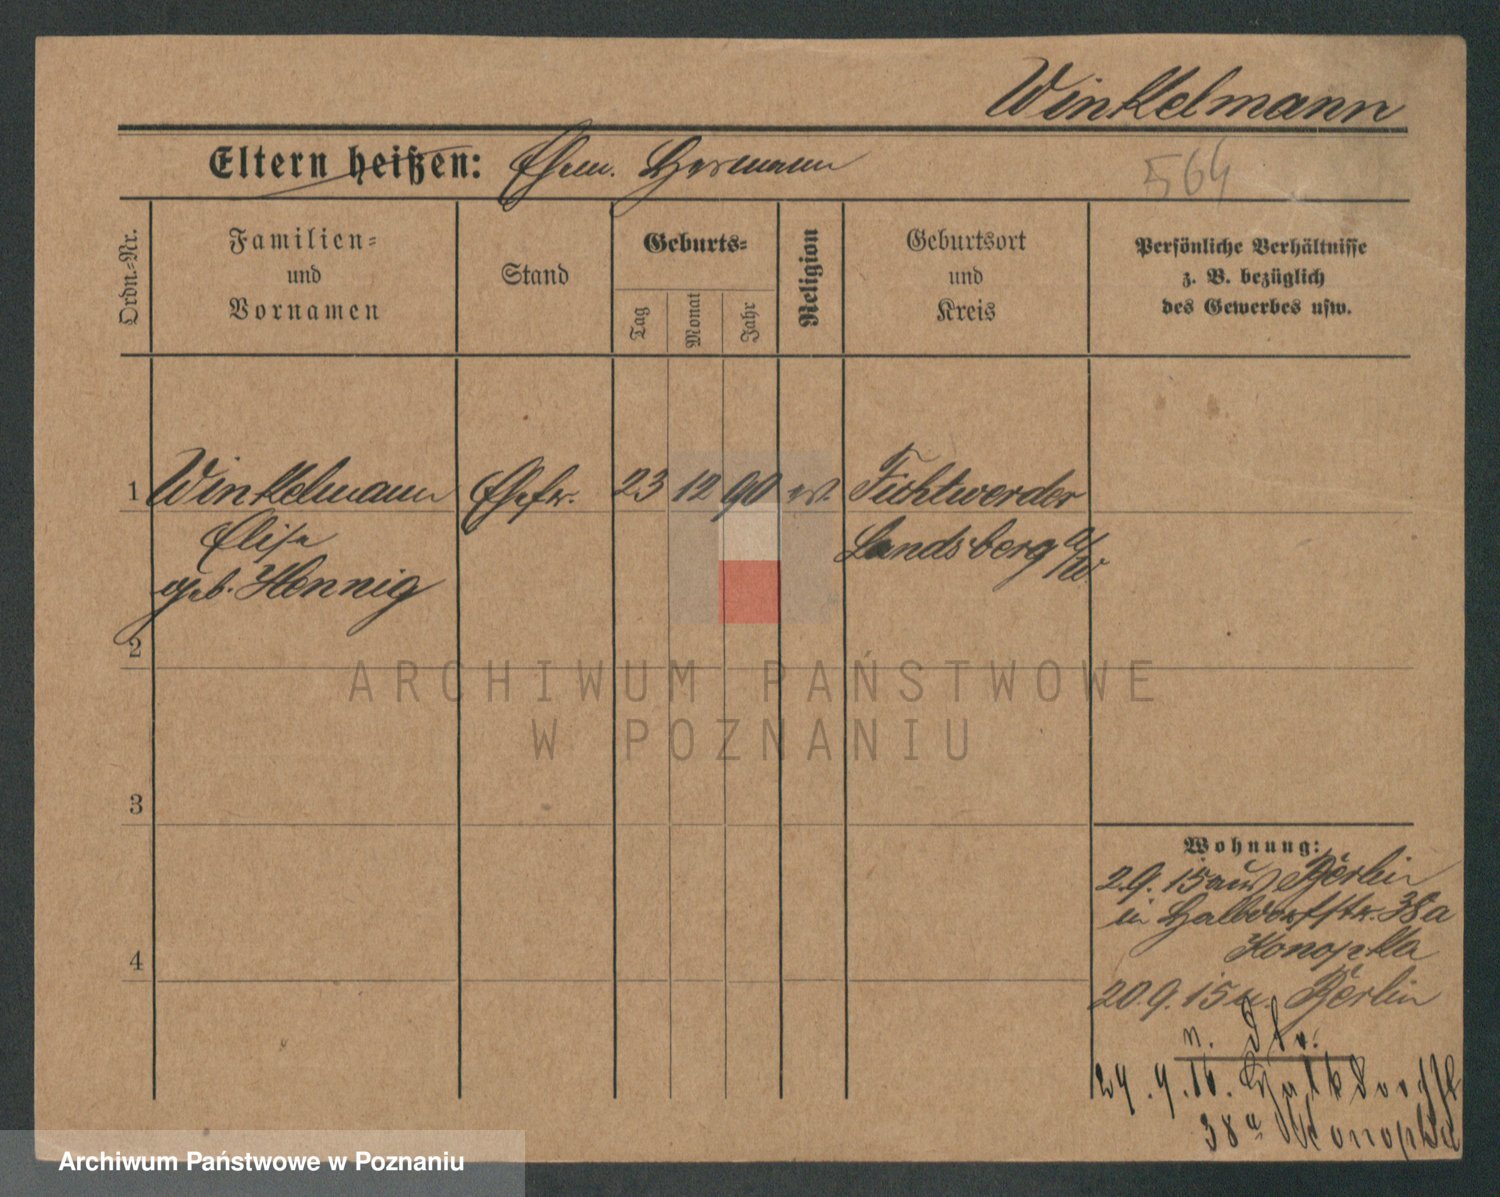 Winkelmann
Eltern heißen: Ehem. Hermann
564
Ordn.-Nr.
Familien-
und
Vornamen
Stand
Geburts-
Tag
Monat
Jahr
Religion
Geburtsort
und
Kreis
Persönliche Verhältnisse
z. B. bezüglich
des Gewerbes usw.
1 Winkelmann Ehefr. 23 12 90 ev. Fichtwerder
Elise Landsberg a/W
geb. Hennig
2
3
4
Wohnung:
2.9.15 aus Berlin
in Halbdorfstr. 38a
Konopka
20.9.15 n. Berlin
n.
24.9.16. Halbdorfstr
38a Konopka
ARCHIWUM PAŃSTWOWE
W POZNANIU
Archiwum Państwowe w Poznaniu